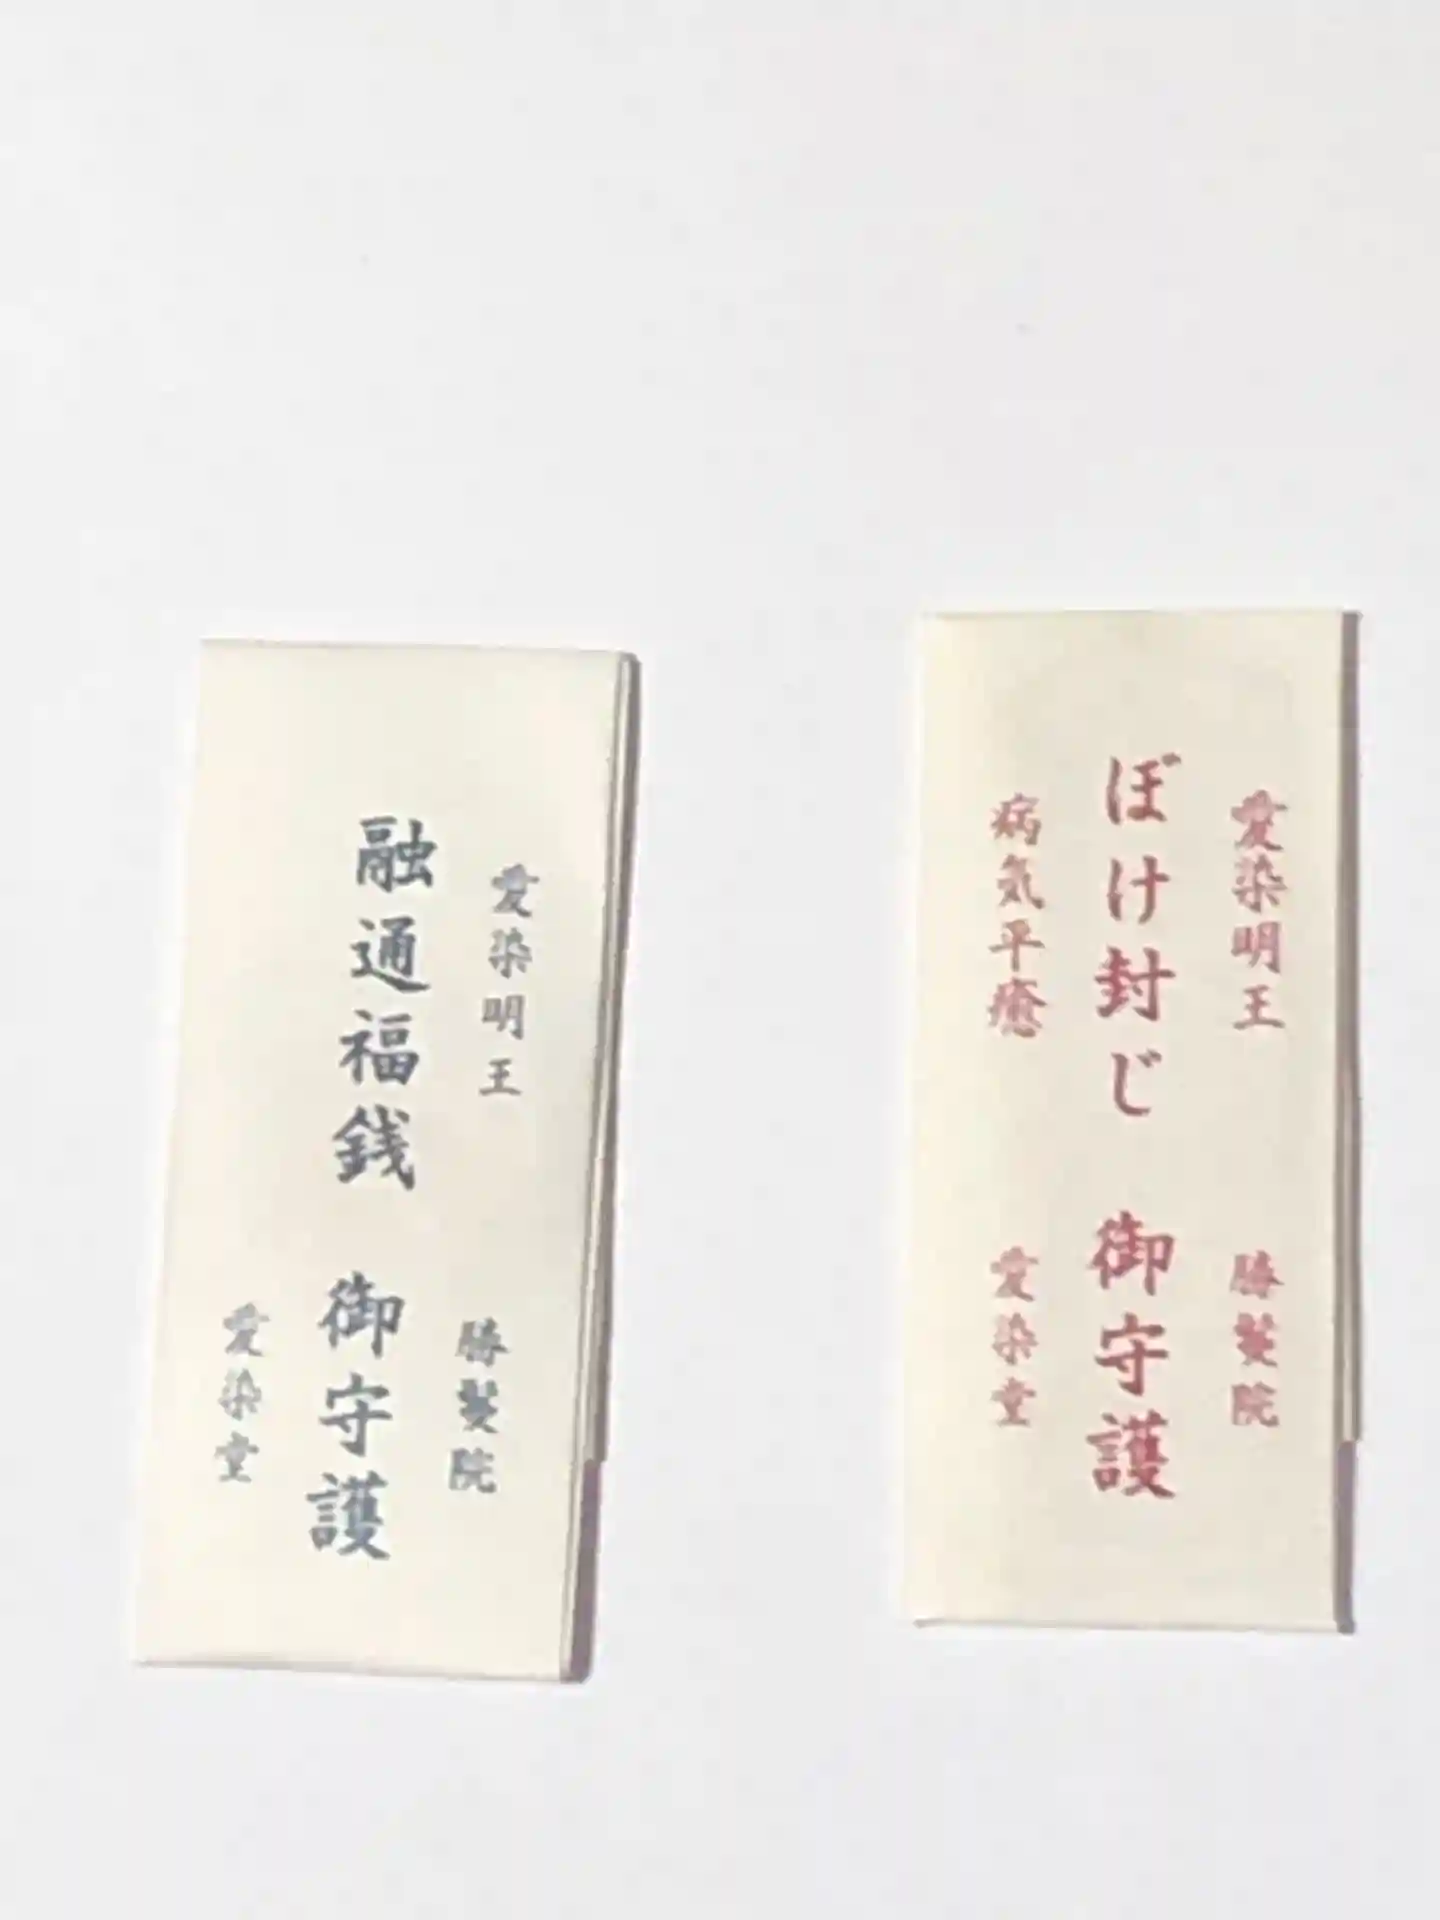 愛染明王 勝鬘院
融通福銭 御守護
愛染堂
愛染明王 勝鬘院
ぼけ封じ 御守護
病気平癒 愛染堂